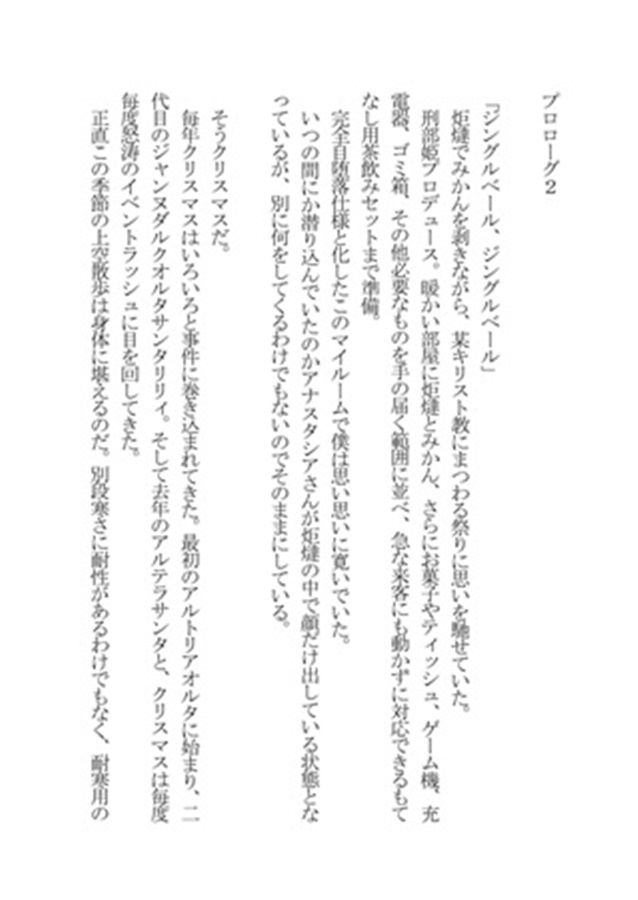 プロローグ２
「ジングルベール、ジングルベール」
炬燵でみかんを剥きながら、某キリスト教にまつわる祭りに思いを馳せていた。
刑部姫プロデュース。暖かい部屋に炬燵とみかん、さらにお菓子やティッシュ、ゲーム機、充
電器、ゴミ箱、その他必要なものを手の届く範囲に並べ、急な来客にも動かずに対応できるもて
なし用茶飲みセットまで準備。
完全自堕落仕様と化したこのマイルームで僕は思い思いに寛いでいた。
いつの間にか潜り込んでいたのかアナスタシアさんが炬燵の中で顔だけ出している状態とな
っているが、別に何をしてくるわけでもないのでそのままにしている。
そうクリスマスだ。
毎年クリスマスはいろいろと事件に巻き込まれてきた。最初のアルトリアオルタに始まり、二
代目のジャンヌダルクオルタサンタリリィ。そして去年のアルテラサンタと、クリスマスは毎度
毎度怒涛のイベントラッシュに目を回してきた。
正直この季節の上空散歩は身体に堪えるのだ。別段寒さに耐性があるわけでもなく、耐寒用の